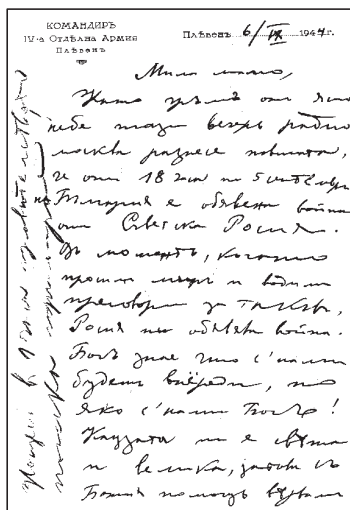 КОМАНДИРЪ
IV-а ОТДѢЛНА АРМИЯ
ПЛѢВЕНЪ
Плѣвенъ 6/IX 1944 г.
Мила мамо,
Като гръмъ отъ ясно
небе тази вечерь радио
Москва разнесе новината,
че отъ 18 часа на 5 септемврий
на България е обявена война
отъ Съветска Росия.
Въ моментъ, когато
просимъ миръ и водимъ
преговори за таквъ,
Росия ни обявява война.
Богъ знае что с'нами
будетъ впереди, но
яко с'нами Богъ!
Каузата ни е свята
и велика, затова съ
Божия помощь вервамъ